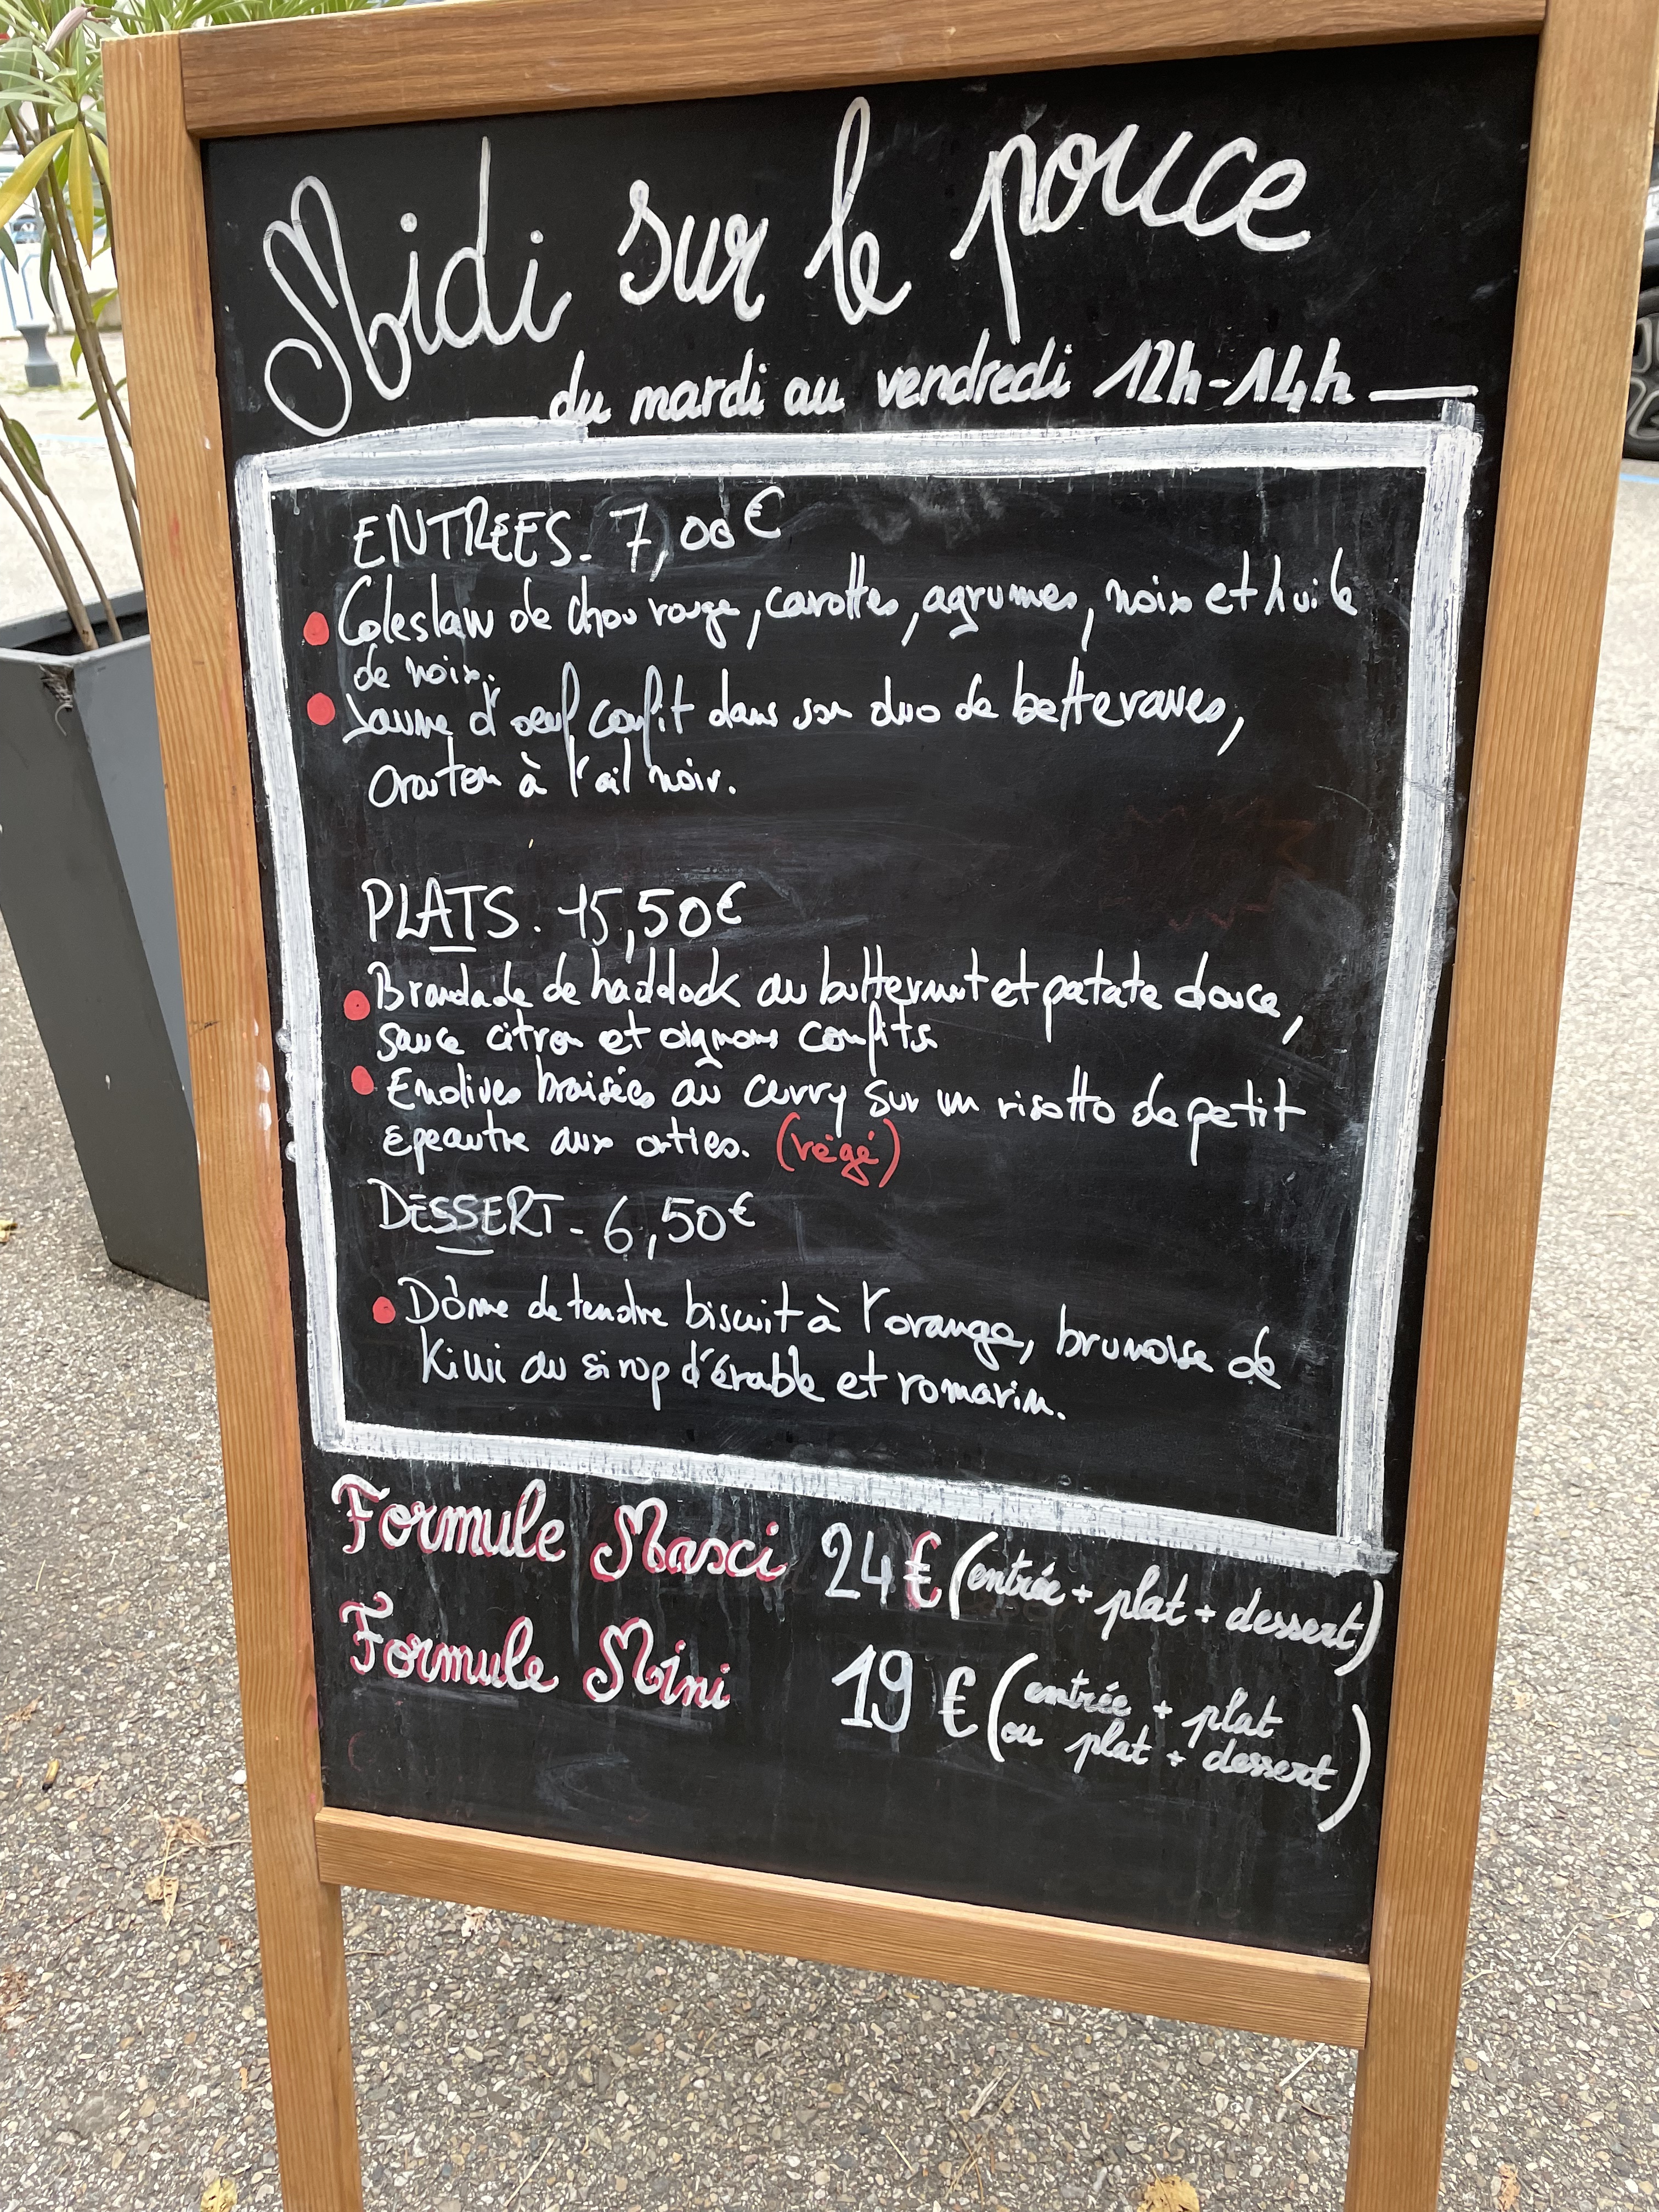 Midi sur le pouce
du mardi au vendredi 12h-14h
ENTREES. 7,00€
Coleslaw de chou rouge, carottes, agrumes, noix et huile
de noix.
Jaune d'oeuf confit dans son duo de betteraves,
crouton à l'ail noir.
PLATS. 15,50€
Brandade de haddock au butternut et patate douce,
sauce citron et oignons confits
Endives braisées au curry sur un risotto de petit
epeautre aux orties. (végé)
DESSERT - 6,50€
Dôme de tendre biscuit à l'orange, brunoise de
Kiwi au sirop d'érable et romarin.
Formule Masci 24€ (entrée + plat + dessert)
Formule Mini 19€ (entrée + plat
ou plat + dessert)